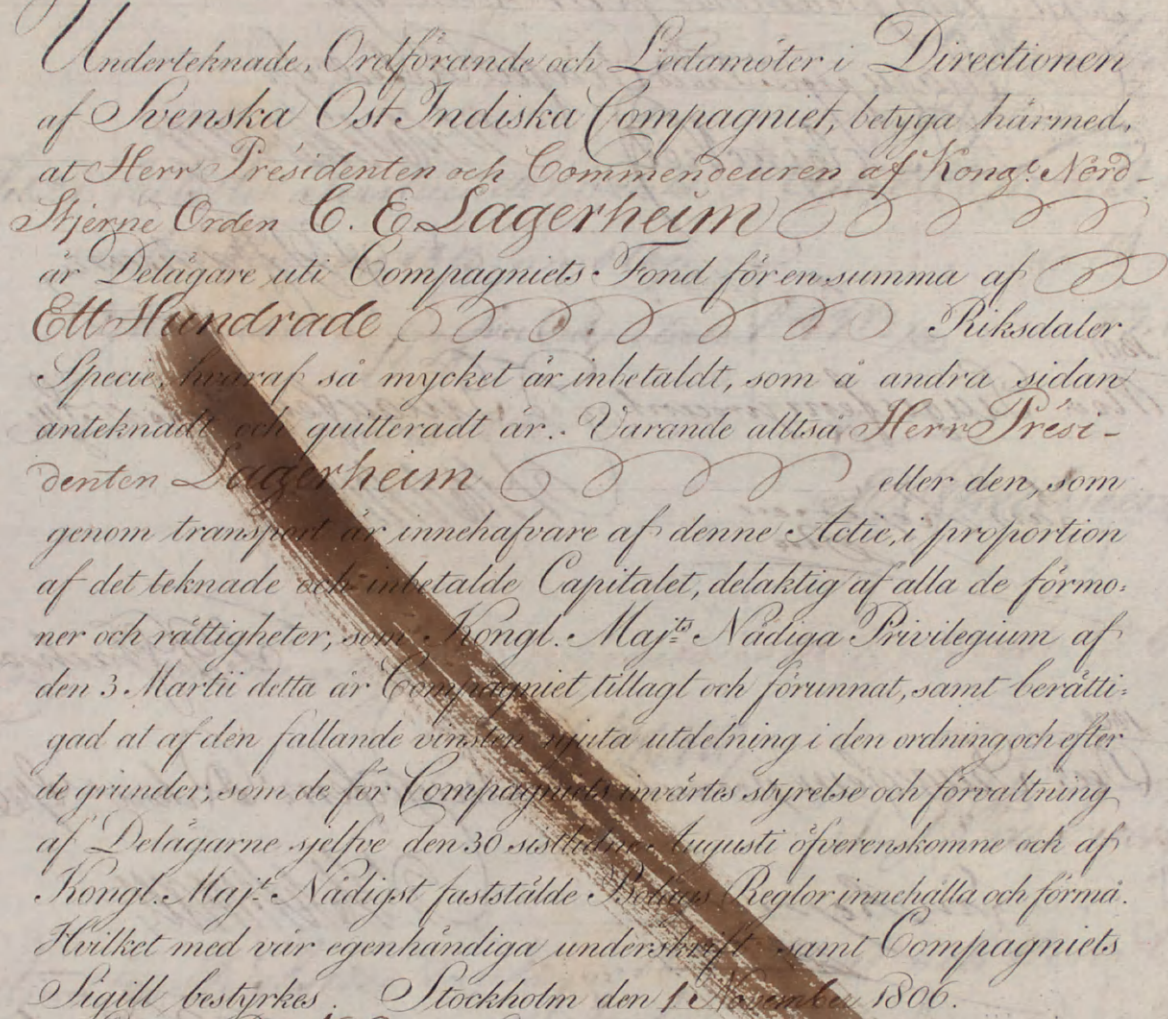 Underteknade, Ordförande och Ledamöter i Directionen
af Svenska Ost Indiska Compagniet, betyga härmed,
at Herr Présidenten och Commendeuren af Kongl. Nord-
Stjerne Orden C. E. Lagerheim
är Delägare uti Compagniets Fond för en summa af
Ett Hundrade Riksdaler
Specie, hvaraf så mycket är inbetaldt, som å andra sidan
anteknadt och quitteradt är. Varande alltså Herr Prési-
denten Lagerheim eller den, som
genom transport är innehafvare af denne Actie, i proportion
af det teknade och inbetalde Capitalet, delaktig af alla de förmo-
ner och rättigheter, som Kongl. Maj:ts Nådiga Privilegium af
den 3 Martii detta år Compagniet tillagt och förunnat, samt berätti-
gad at af den fallande vinsten njuta utdelning i den ordning och efter
de grunder, som de för Compagniets invärtes styrelse och förvaltning
af Delägarne sjelfve den 30 sistledne Augusti öfverenskomne och af
Kongl. Maj:t Nådigst fastställde Bolags Reglor innehålla och förmå.
Hvilket med vår egenhändiga underskrift samt Compagniets
Sigill bestyrkes. Stockholm den 1 November 1806.